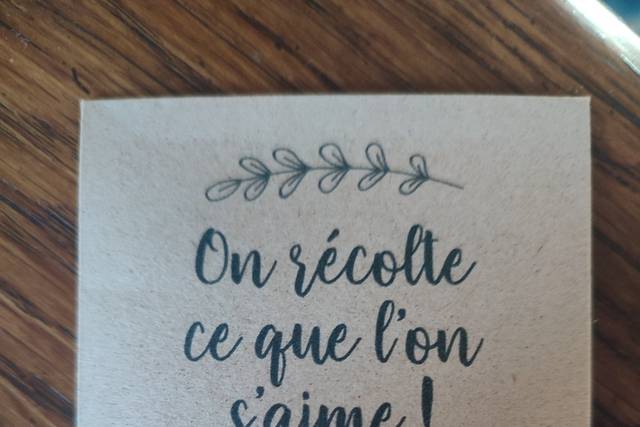 On récolte
ce que l'on
s'aime !